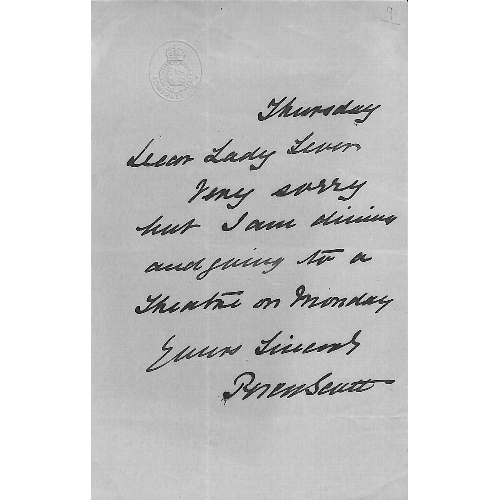 9
Thursday
Dear Lady Lever
Very sorry
but I am dining
and going to a
Theatre on Monday
Yours Sincerely
Percy Scott